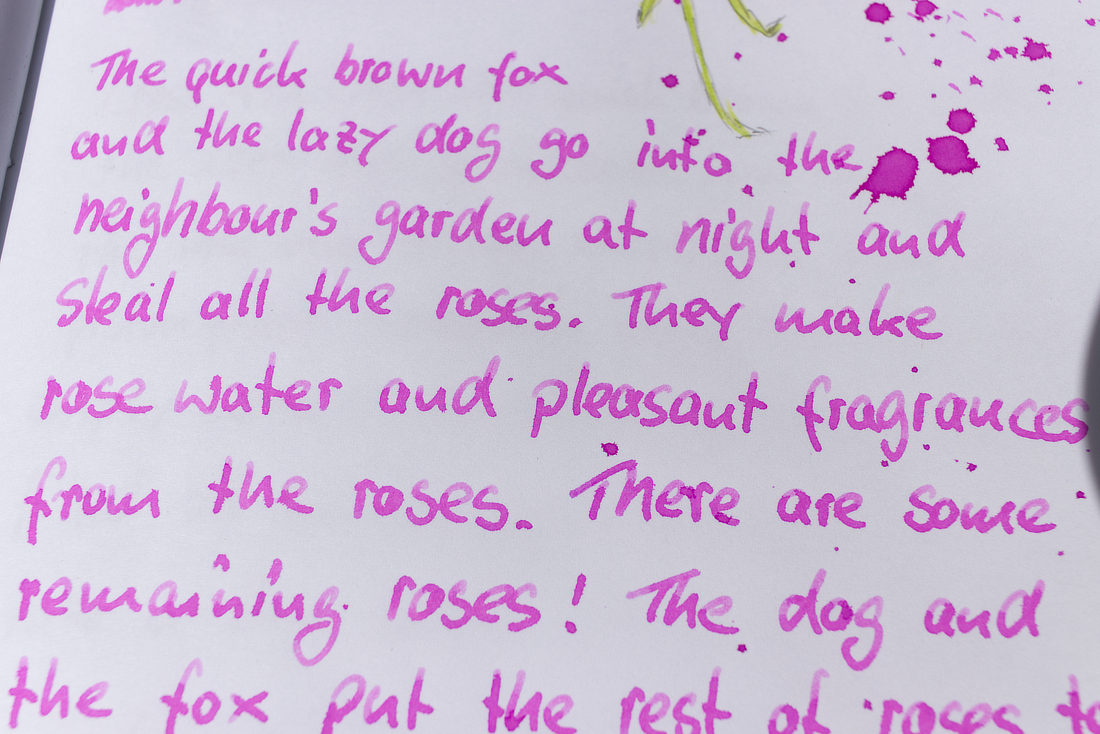 The quick brown fox
and the lazy dog go into the
neighbour's garden at night and
steal all the roses. They make
rose water and pleasant fragrances
from the roses. There are some
remaining roses! The dog and
the fox put the rest of roses to